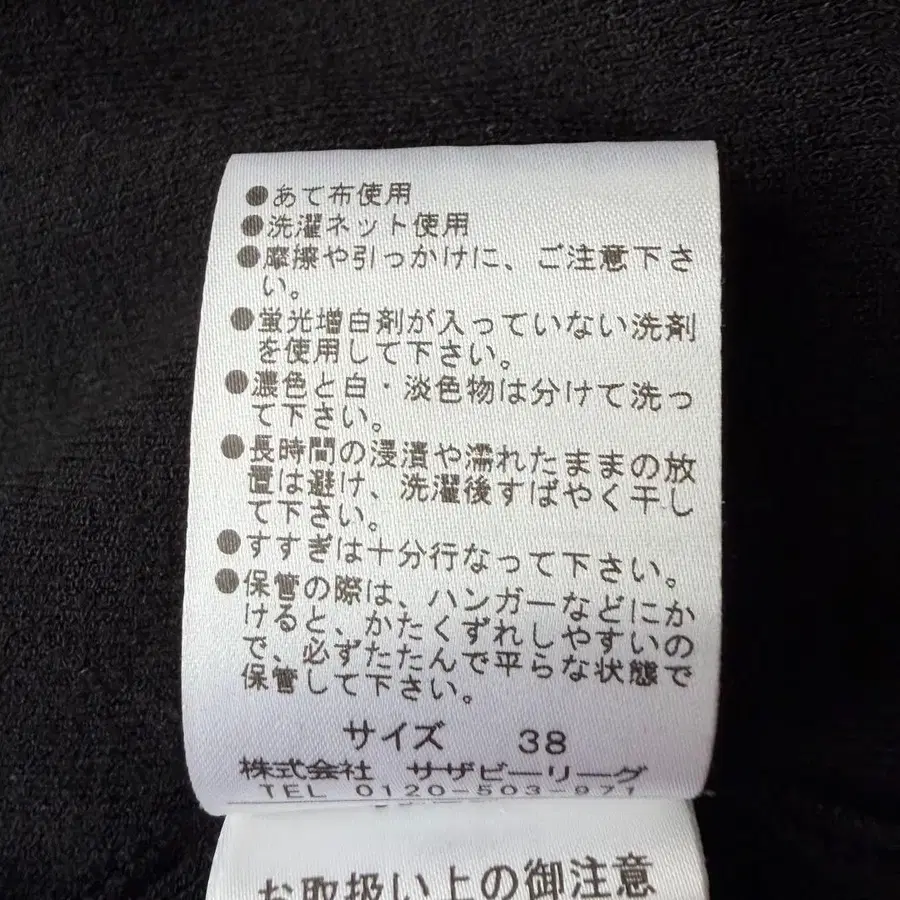 ●あて布使用
●洗濯ネット使用
●摩擦や引っかけに、ご注意下さ
い。
●蛍光増白剤が入っていない洗剤
を使用して下さい。
●濃色と白・淡色物は分けて洗っ
て下さい。
●長時間の浸漬や濡れたままの放
置は避け、洗濯後すばやく干し
て下さい。
●すすぎは十分行なって下さい。
●保管の際は、ハンガーなどにか
けると、かたくずれしやすいの
で、必ずたたんで平らな状態で
保管して下さい。
サイズ 38
株式会社 サザビーリーグ
TEL 0120-503-971
お取扱い上の御注意